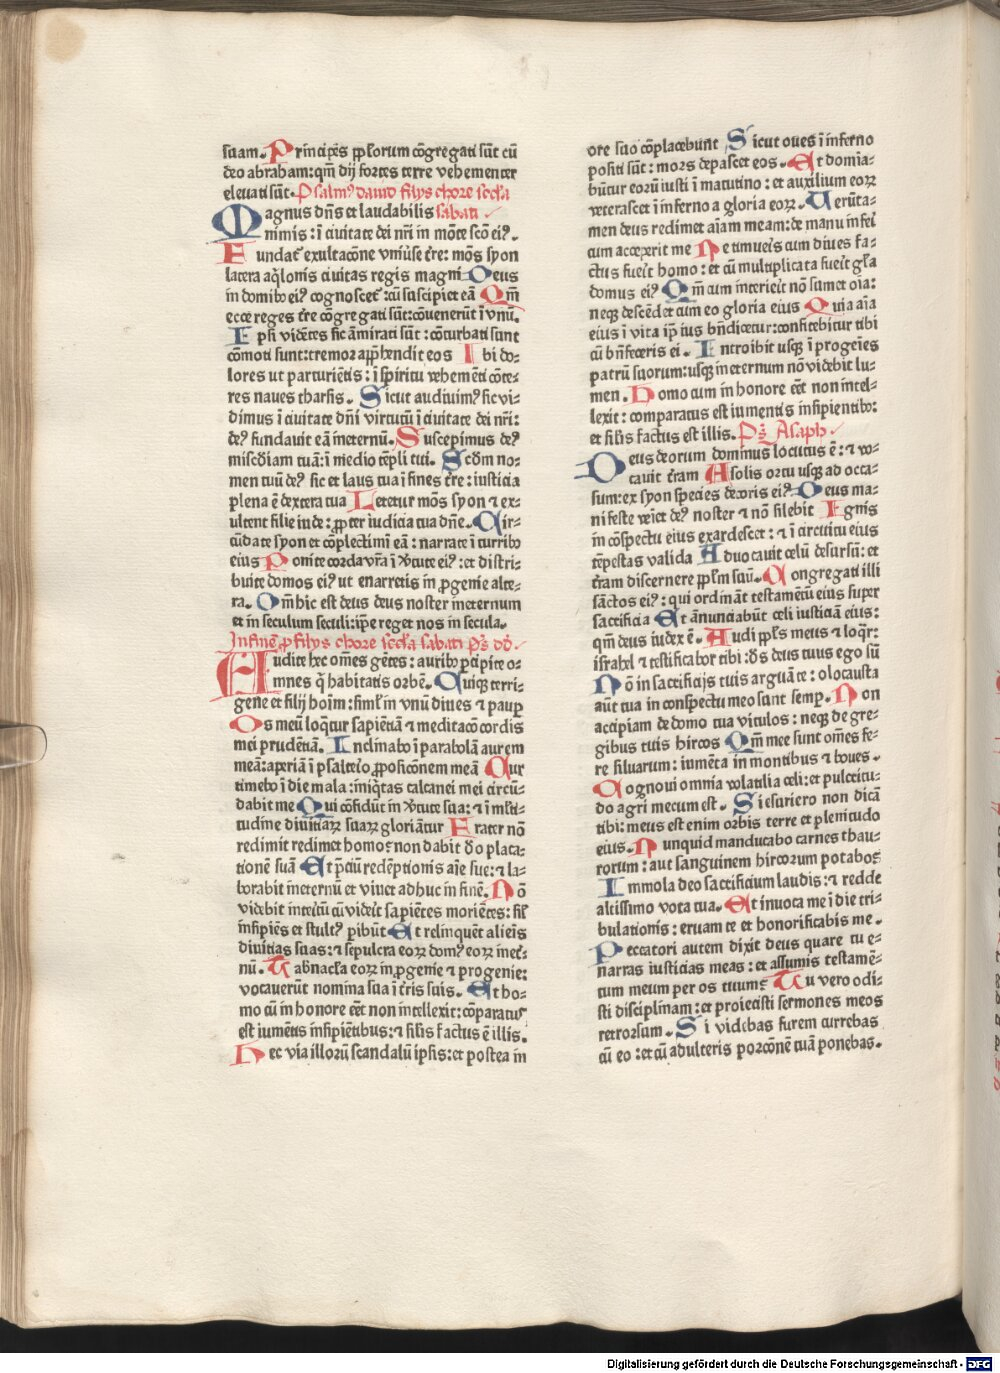 suam. Principes ppl'orum cōgregati sūt cū
deo abraham: qm̄ dij fortes terre vehementer
eleuati sūt. Psalmꝰ dauid filijs chore scd'a
Magnus dn̄s et laudabilis sabati
nimis: ī ciuitate dei nr̄i in mōte scō eiꝰ.
Fundat̄ exultacōne vniuꝰse tr̄re: mōs syon
latera aq̄lonis ciuitas regis magni Deus
in domibꝰ eiꝰ cognoscet̄: cū suscipiet eā Qm̄
ecce reges tr̄re cōgregati sūt: cōuenerūt ī vnū.
Ipsi vidētes sic āmirati sūt: cōturbati sunt
cōmoti sunt: tremor apꝓhendit eos Ibi do-
lores ut parturiētis: ī spiritu vehemēti cōte-
res naues tharsis. Sicut audiuimꝰ sic vi-
dimus ī ciuitate dn̄i virtutū ī ciuitate dei nr̄i:
deꝰ fundauit eā ineternū. Suscepimus deꝰ
misc̄diam tuā: ī medio tēpli tui. Scd̄m no-
men tuū deꝰ sic et laus tua ī fines tr̄re: iusticia
plena ē dextera tua Letetur mōs syon ⁊ ex-
ultent filie iude: ꝓpter iudicia tua dn̄e. Cir-
cūdate syon et cōplectimī eā: narrate ī turribꝰ
eius Ponite corda vr̄a ī v̄tute eiꝰ: et distri-
buite domos eiꝰ ut enarretis in ꝓgenie alte-
ra. Qm̄ hic est deus deus noster ineternum
et in seculum seculi: ip̄e reget nos in secula.
In finē ꝓ filijs chore scd'a sabati ps̄ dd̄.
Audite hec om̄es gētes: auribꝰ ꝑcipite o-
mnes q̄ habitatis orbē. Quiqꝫ terri-
gene et filij hoīm: siml̄ in vnū diues ⁊ paupꝑ
Os meū loq̄tur sapiētiā ⁊ meditacō cordis
mei prudētiā. Inclinabo ī parabolā aurem
meā: aperiā ī psalterio ꝓposicōnem meā Cur
timebo ī die mala: iniq̄tas calcanei mei circū-
dabit me Qui cōfidūt in v̄tute sua: ⁊ ī mlti-
tudine diuitiaꝝ suaꝝ gloriātur Frater nō
redimit redimet homo: non dabit d̄o placa-
tionē suā Et p̄ciū redēptionis aīe sue: ⁊ la-
borabit ineternū et viuet adhuc in finē. Nō
videbit īteritū cū viderit sapiētes moriētes: sīl
insipiēs et stultꝰ ꝑibūt Et relinquēt alienis
diuitias suas: ⁊ sepulcra eoꝝ domꝰ eoꝝ ineter-
nū. Tabnac̄la eoꝝ in ꝓgenie ⁊ progenie:
vocauerūt nomina sua ī tr̄ris suis. Et ho-
mo cū in honore eēt non intellexit: cōparatus
est iumētis insipiētibus: ⁊ sil'is factus ē illis.
Hec via illorū scandalū ipsis: et postea in
ore suo cōplacebunt Sicut oues ī inferno
positi sūt: mors depascet eos. Et domīa-
būtur eorū iusti ī matutino: et auxilium eoꝝ
veterascet ī inferno a gloria eoꝝ. Verūta-
men deus redimet aīam meam: de manu inferi
cum acceperit me Ne timueris cum diues fa-
ctus fuerit homo: et cū multiplicata fuerit gl'a
domus eiꝰ Qm̄ cum interierit nō sumet oīa:
neqꝫ descēdet cum eo gloria eius Quia aīa
eius ī vita ip̄ius bn̄dicetur: confitebitur tibi
cū bn̄feceris ei. Introibit usqꝫ ī progeīes
patrū suorum: usqꝫ ineternum nō videbit lu-
men. Homo cum in honore eēt non intel-
lexit: comparatus est iumentis insipientibꝰ:
et sil'is factus est illis. Ps̄ Asaph
Deus deorum dominus locutus ē: ⁊ vo-
cauit tr̄ram A solis ortu usqꝫ ad occa-
sum: ex syon species decoris eiꝰ Deus ma-
nifeste veīet deꝰ noster ⁊ nō silebit Ignis
in cōspectu eius exardescet: ⁊ ī circuitu eius
tēpestas valida Aduocauit celū desursū: et
tr̄ram discernere ppl'm suū. Congregati illi
sāctos eiꝰ: qui ordināt testamētū eius super
sacrificia Et ānunciabūt celi iusticiā eius:
qm̄ deus iudex ē. Audi ppl's meus ⁊ loq̄r:
israhel ⁊ testificabor tibi: d̄s deus tuus ego sū
Nō in sacrificijs tuis arguā te: olocausta
aūt tua in conspectu meo sunt semꝑ. Non
accipiam de domo tua vitulos: neqꝫ de gre-
gibus tuis hircos Qm̄ mee sunt om̄es fe-
re siluarum: iumēta in montibus ⁊ boues.
Cognoui omnia volatilia celi: et pulcritu-
do agri mecum est. Si esuriero non dicā
tibi: meus est enim orbis terre et plenitudo
eius. Nunquid manducabo carnes thau-
rorum: aut sanguinem hircorum potabo:
Immola deo sacrificium laudis: ⁊ redde
altissimo vota tua. Et inuoca me ī die tri-
bulationis: eruam te et honorificabis me.
Peccatori autem dixit deus quare tu e-
narras iusticias meas: et assumis testamē-
tum meum per os tuum: Tu vero odi-
sti disciplinam: et proiecisti sermones meos
retrorsum. Si videbas furem currebas
cū eo: et cū adulteris porcōnē tuā ponebas.
Digitalisierung gefördert durch die Deutsche Forschungsgemeinschaft - DFG